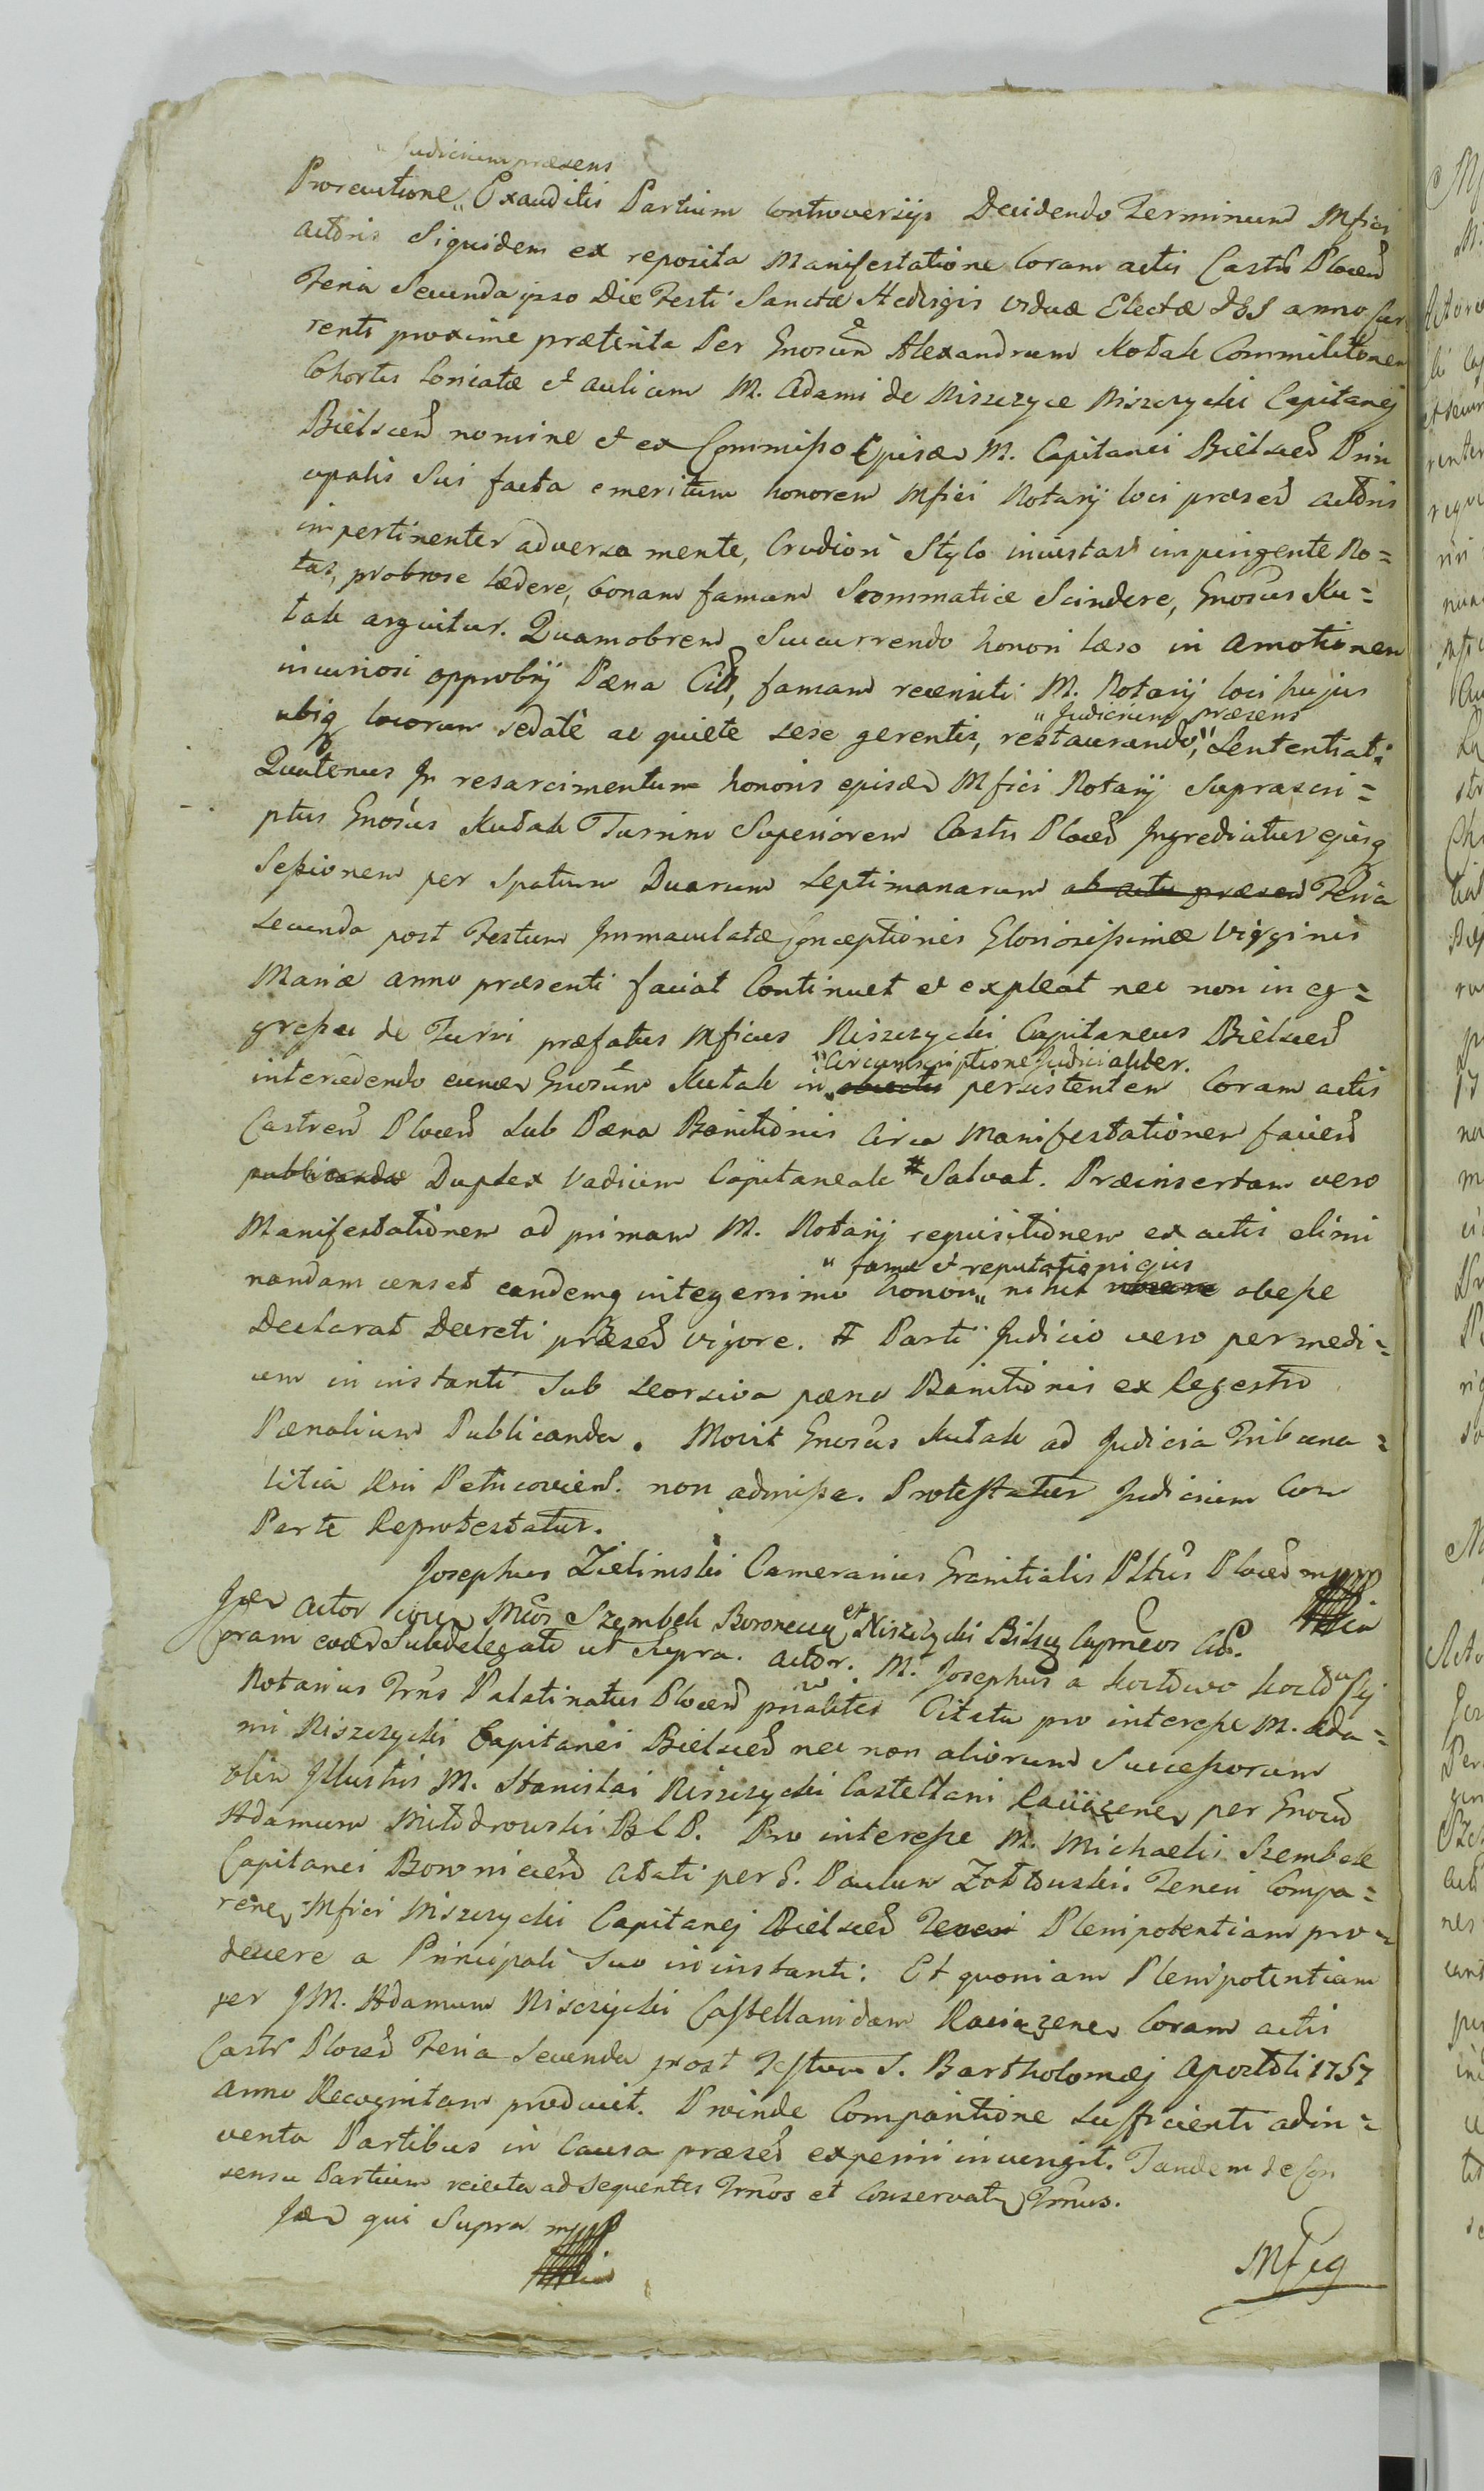 " Judicium præsens
Prorcutione „ Exauditis Partium Controversijs Decidendo Terminum Mfici
Actoris Siquidem ex reposita Manifestatione Coram actis Castri Plocen
Feria Secunda ipso Die Festi Sanctæ Hedvigis viduæ Electæ DSS anno Cur
renti proxime præterita Per Gnosum Alexandrum Kutak Commilitonem
Cohortis Loricatæ et aulicum M. Adami de Niszczyce Niszczycki Capitanej
Bielscen nomine et ex Commisso Ejusd M. Capitanei Bielscen Prin
cipalis Sui facta emeritum honorem Mfici Notarij loci præsen actoris
impertinenter adversa mente, Crudiori Stylo iniustas impingente No=
tas, probrose lædere, bonam famam Scommatice Scindere, Gnosus Ku=
tak arguitur. Quamobrem Succurrendo honori læso in amotionem
incuriosi opprobrij Pæna Cit, famam recensiti M. Notarij loci hujus
" Judicium præsens
ubiq locorum sedatè ac quiete sese gerentis, restaurando, " Sententiat:
Quatenus In resarcimentum honoris ejusd Mfici Notarij Suprascri=
ptus Gnosus Kutak Turrim Superiorem Castri Plocen Ingrediatur ejusq
Sessionem per Spatium Duarum Septimanarum ab actu præsen Feria
secunda post Festum Immaculatæ Conceptionis Gloriosissimæ Virginis
Mariæ anno præsenti faciat Continuet et expleat nec non in eg=
gressu de Turri præfatus Mficus Niszczycki Capitaneus Bielscen
" Circumscriptione Judicialiter.
intercedendo eumd Gnosum Kutak in „ persistentem Coram actis
Castren Plocen Sub Pæna Banitionis Circa Manifestationem facien
publicandæ Duplex Vadium Capitaneale # Salvat. Præinsertam vero
Manifestationem ad primam M. Notarij requisitionem ex actis elimi
" famæ et reputationi ejus
nandam censet eandemq integerrimo honori „ nihil obesse
Declarat Decreti præsen vigore. # Parti Judicio vero per medi=
um in instanti Sub seorsiva pæna Banitionis ex Regestro
Pænalium Publicanda. Movit Gnosus Kutak ad Judicia Tribuna=
litia Rni Petricovien. non admissa. Protestatur Judicium Cum
Parte Reprotestatur.
Josephus Zielinski Camerarius Granitialis Pltus Plocen mpp
Ijd Actor cum Mcos Szembek Boronecen et Niszczycki Bilscen Capneos Cit.
Coram eod Subdelegato ut supra. Actor. M. Josephus a
Notarius Trris Palatinatus Plocen pñaliter Citatu pro interesse M. Ada=
mi Niszczycki Capitanei Bielscen nec non aliorum Successorum
olim Illustris M. Stanislai Niszczycki Castellani Raciązen per Gnosum
Adamum Młodrowski P. Pro interesse M. Michaelis Szembek
Capitanei Borowniccen Citati per G. Paulum Zołtowski. Teneri Compa=
rere, Mfici Niszczycki Capitanej Bielscen Teneri Plenipotentiam pro=
ducere a Principali Suo in instanti: Et quoniam Plenipotentiam
per JM. Adamum Nisczycki Castellanidam Raciązen Coram actis
Castr Plocen Feria Secunda post Festum S. Bartholomæj Apostoli 1757
anno Recognitam produxit. Proinde Comparitione Sufficienti adin=
venta Partibus in Causa præsen experiri iniungit. Tandem de Con
sensu Partium reiecta ad sequentes Trnos et Conservatq Trnus.
Ijd qui Supra mpp